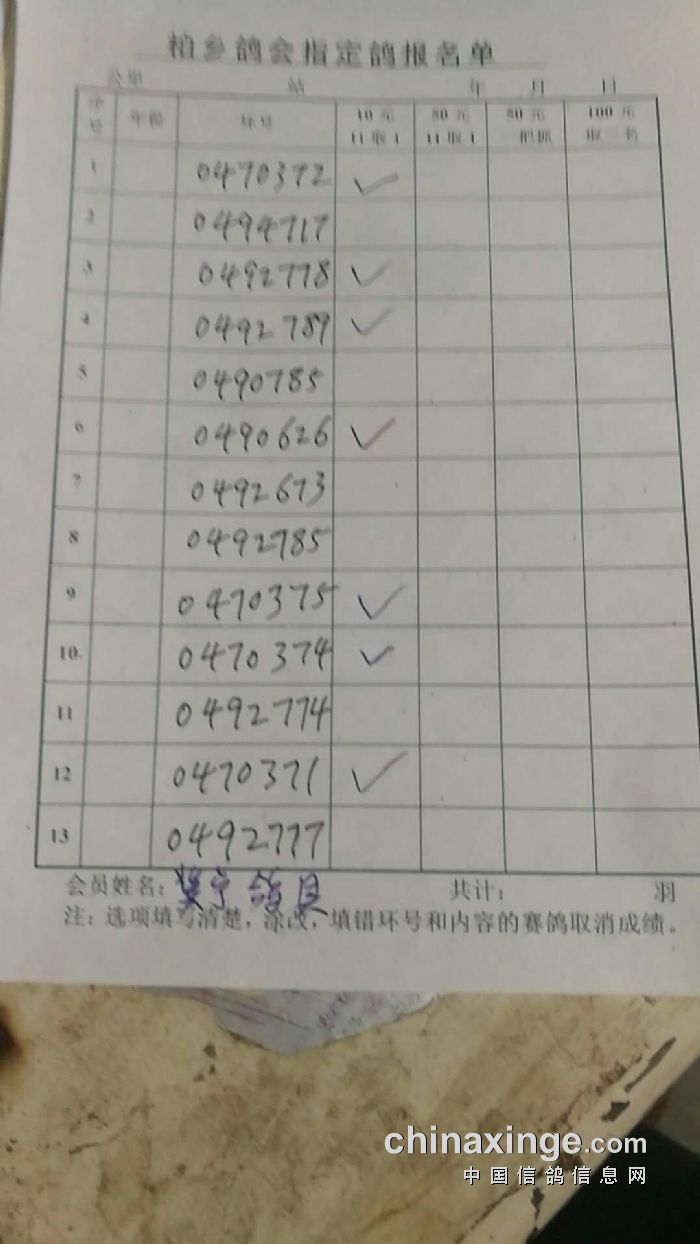 柏乡鸽会指定鸽报名单
公里 站 年 月 日
序号 年份 环号 10元 11取1 50元 11取1 50元 一把抓 100元 取三名
1 0470372 ✓
2 0494717
3 0492778 ✓
4 0492789 ✓
5 0490785
6 0490626 ✓
7 0492673
8 0492785
9 0470375 ✓
10. 0470374 ✓
11 0492774
12 0470371 ✓
13 0492777
会员姓名: 共计: 羽
注: 选项填写清楚, 涂改, 填错环号和内容的赛鸽取消成绩。
chinaxinge.com
中国信鸽信息网